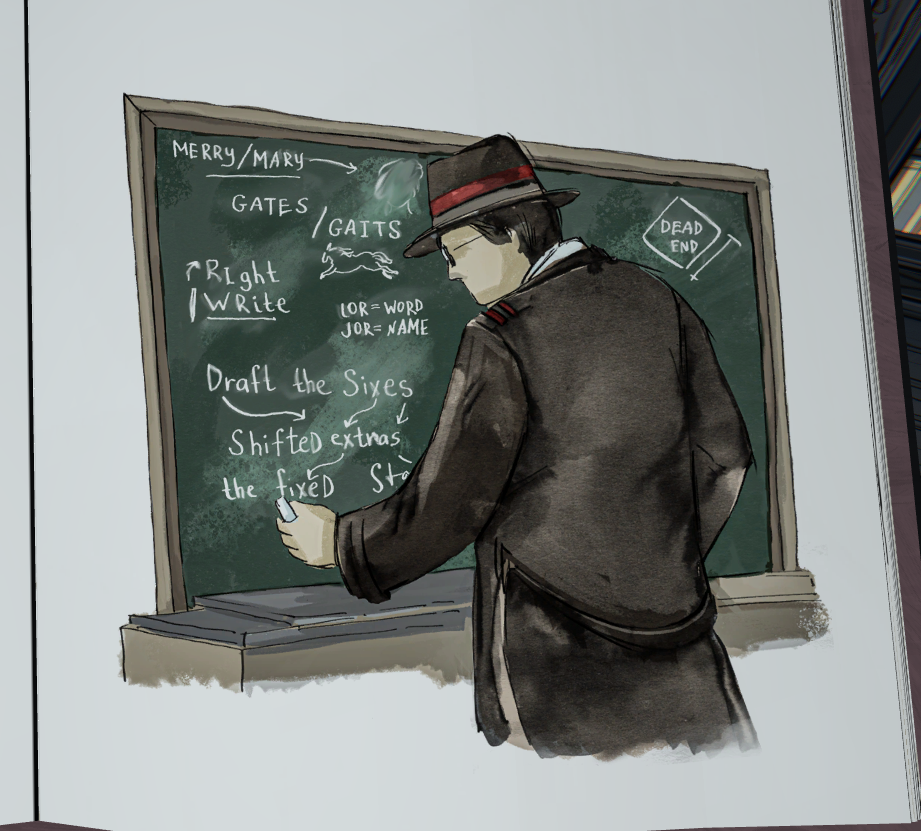 MERRY/MARY
GATES
/GAITS
RIght
WRite
LOR=WORD
JOR=NAME
Draft the Sixes
ShifteD extras
the fixeD Sta
DEAD
END